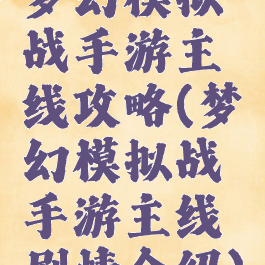 梦幻模拟
战手游主
线攻略(梦
幻模拟战
手游主线
剧情介绍)